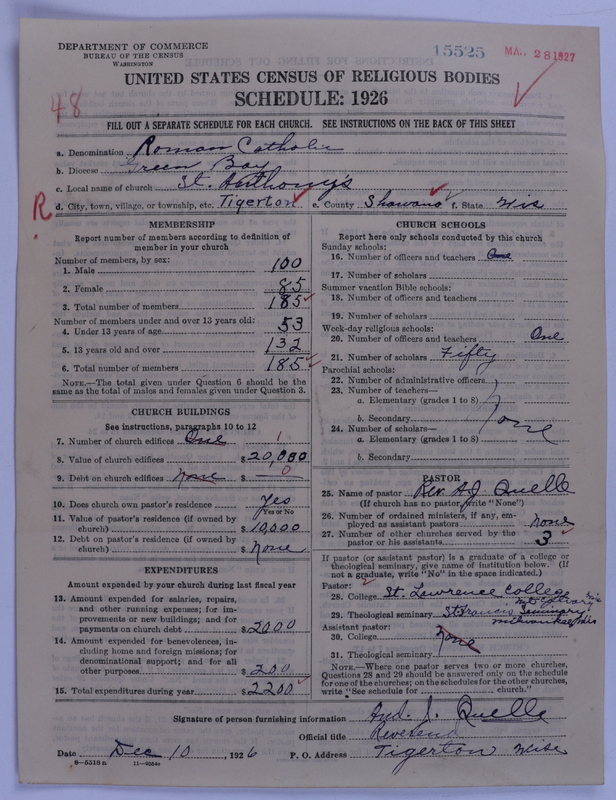 DEPARTMENT OF COMMERCE
BUREAU OF THE CENSUS
WASHINGTON
15525
MAR 28 1927
UNITED STATES CENSUS OF RELIGIOUS BODIES
SCHEDULE: 1926
48
FILL OUT A SEPARATE SCHEDULE FOR EACH CHURCH. SEE INSTRUCTIONS ON THE BACK OF THIS SHEET
a. Denomination Roman Catholic
b. Diocese Green Bay
c. Local name of church St. Anthony's
R
d. City, town, village, or township, etc. Tigerton e. County Shawano f. State Wis
MEMBERSHIP
Report number of members according to definition of
member in your church
Number of members, by sex:
1. Male 100
2. Female 85
3. Total number of members 185
Number of members under and over 13 years old:
4. Under 13 years of age 53
5. 13 years old and over 132
6. Total number of members 185
NOTE.—The total given under Question 6 should be the
same as the total of males and females given under Question 3.
CHURCH BUILDINGS
See instructions, paragraphs 10 to 12
7. Number of church edifices One 1
8. Value of church edifices $ 20,000
9. Debt on church edifices None $ 0
10. Does church own pastor's residence Yes
Yes or No
11. Value of pastor's residence (if owned by
church) $ 10,000
12. Debt on pastor's residence (if owned by
church) $ None
EXPENDITURES
Amount expended by your church during last fiscal year
13. Amount expended for salaries, repairs,
and other running expenses; for im-
provements or new buildings; and for
payments on church debt $ 2000
14. Amount expended for benevolences, in-
cluding home and foreign missions; for
denominational support; and for all
other purposes $ 200
15. Total expenditures during year $ 2200
CHURCH SCHOOLS
Report here only schools conducted by this church
Sunday schools:
16. Number of officers and teachers One
17. Number of scholars
Summer vacation Bible schools:
18. Number of officers and teachers
19. Number of scholars
Week-day religious schools:
20. Number of officers and teachers One
21. Number of scholars Fifty
Parochial schools:
22. Number of administrative officers
23. Number of teachers—
a. Elementary (grades 1 to 8)
b. Secondary None
24. Number of scholars—
a. Elementary (grades 1 to 8)
b. Secondary
PASTOR
25. Name of pastor Rev. A J Quelle
(If church has no pastor, write "None")
26. Number of ordained ministers, if any, em-
ployed as assistant pastors None
27. Number of other churches served by the
pastor or his assistants 3
If pastor (or assistant pastor) is a graduate of a college or
theological seminary, give name of institution below. (If
not a graduate, write "No" in the space indicated.)
Pastor:
28. College St. Lawrence College
Mt Calvary Wis
29. Theological seminary St Francis Seminary
Milwaukee Wis
Assistant pastor:
30. College None
31. Theological seminary
NOTE.—Where one pastor serves two or more churches,
Questions 28 and 29 should be answered only on the schedule
for one of the churches; on the schedules for the other churches,
write "See schedule for church."
Signature of person furnishing information And. J. Quelle
Official title Reverend
Date Dec 10, 1926 P. O. Address Tigerton Wise